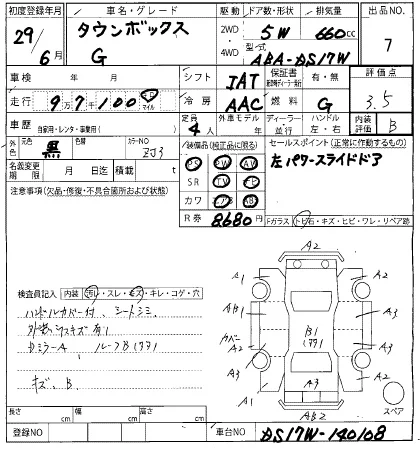 初度登録年月 車名・グレード 駆動 ドア数・形状 排気量 出品NO.
29/6月 タウンボックス G 2WD 4WD 5W 660cc 7
型式 ABA-DS17W
車検 年 月 シフト IAT 保証書 有・無 評価点 3.5
走行 9万7千100 km マイル 冷房 AAC 燃料 G
車歴 自家用・レンタ・事業用( ) 定員 4人 外装モデル 年 ディーラー 並行 ハンドル 左・右 内装評価 B
外色 元色 黒 色替 カラーNO ZJ3 装備品(純正品に限る) セールスポイント(正常に作動するもの)
名義変更期限 月 日迄 積載 t PS PW 左パワースライドドア
注意事項(欠品・修復・不具合箇所および状態) SR TV
カワ AB
R券 8680円 Fガラス(トビ石・キズ・ヒビ・ワレ・リペア跡)
A2
A1 A1
検査員記入 内装(汚レ・スレ・キズ・キレ・コゲ・穴)
ハンドルカバー付、シートシミ AB1 A3
外装小キズ有り カバー B1
Dミラー A ルーフB(ワワ) A2 (ワワ) A2
A3 A3
キズ、B A3
A1 A1
スペア
長さ cm 幅 cm 高さ cm AB2
登録NO 車台NO DS17W-140108